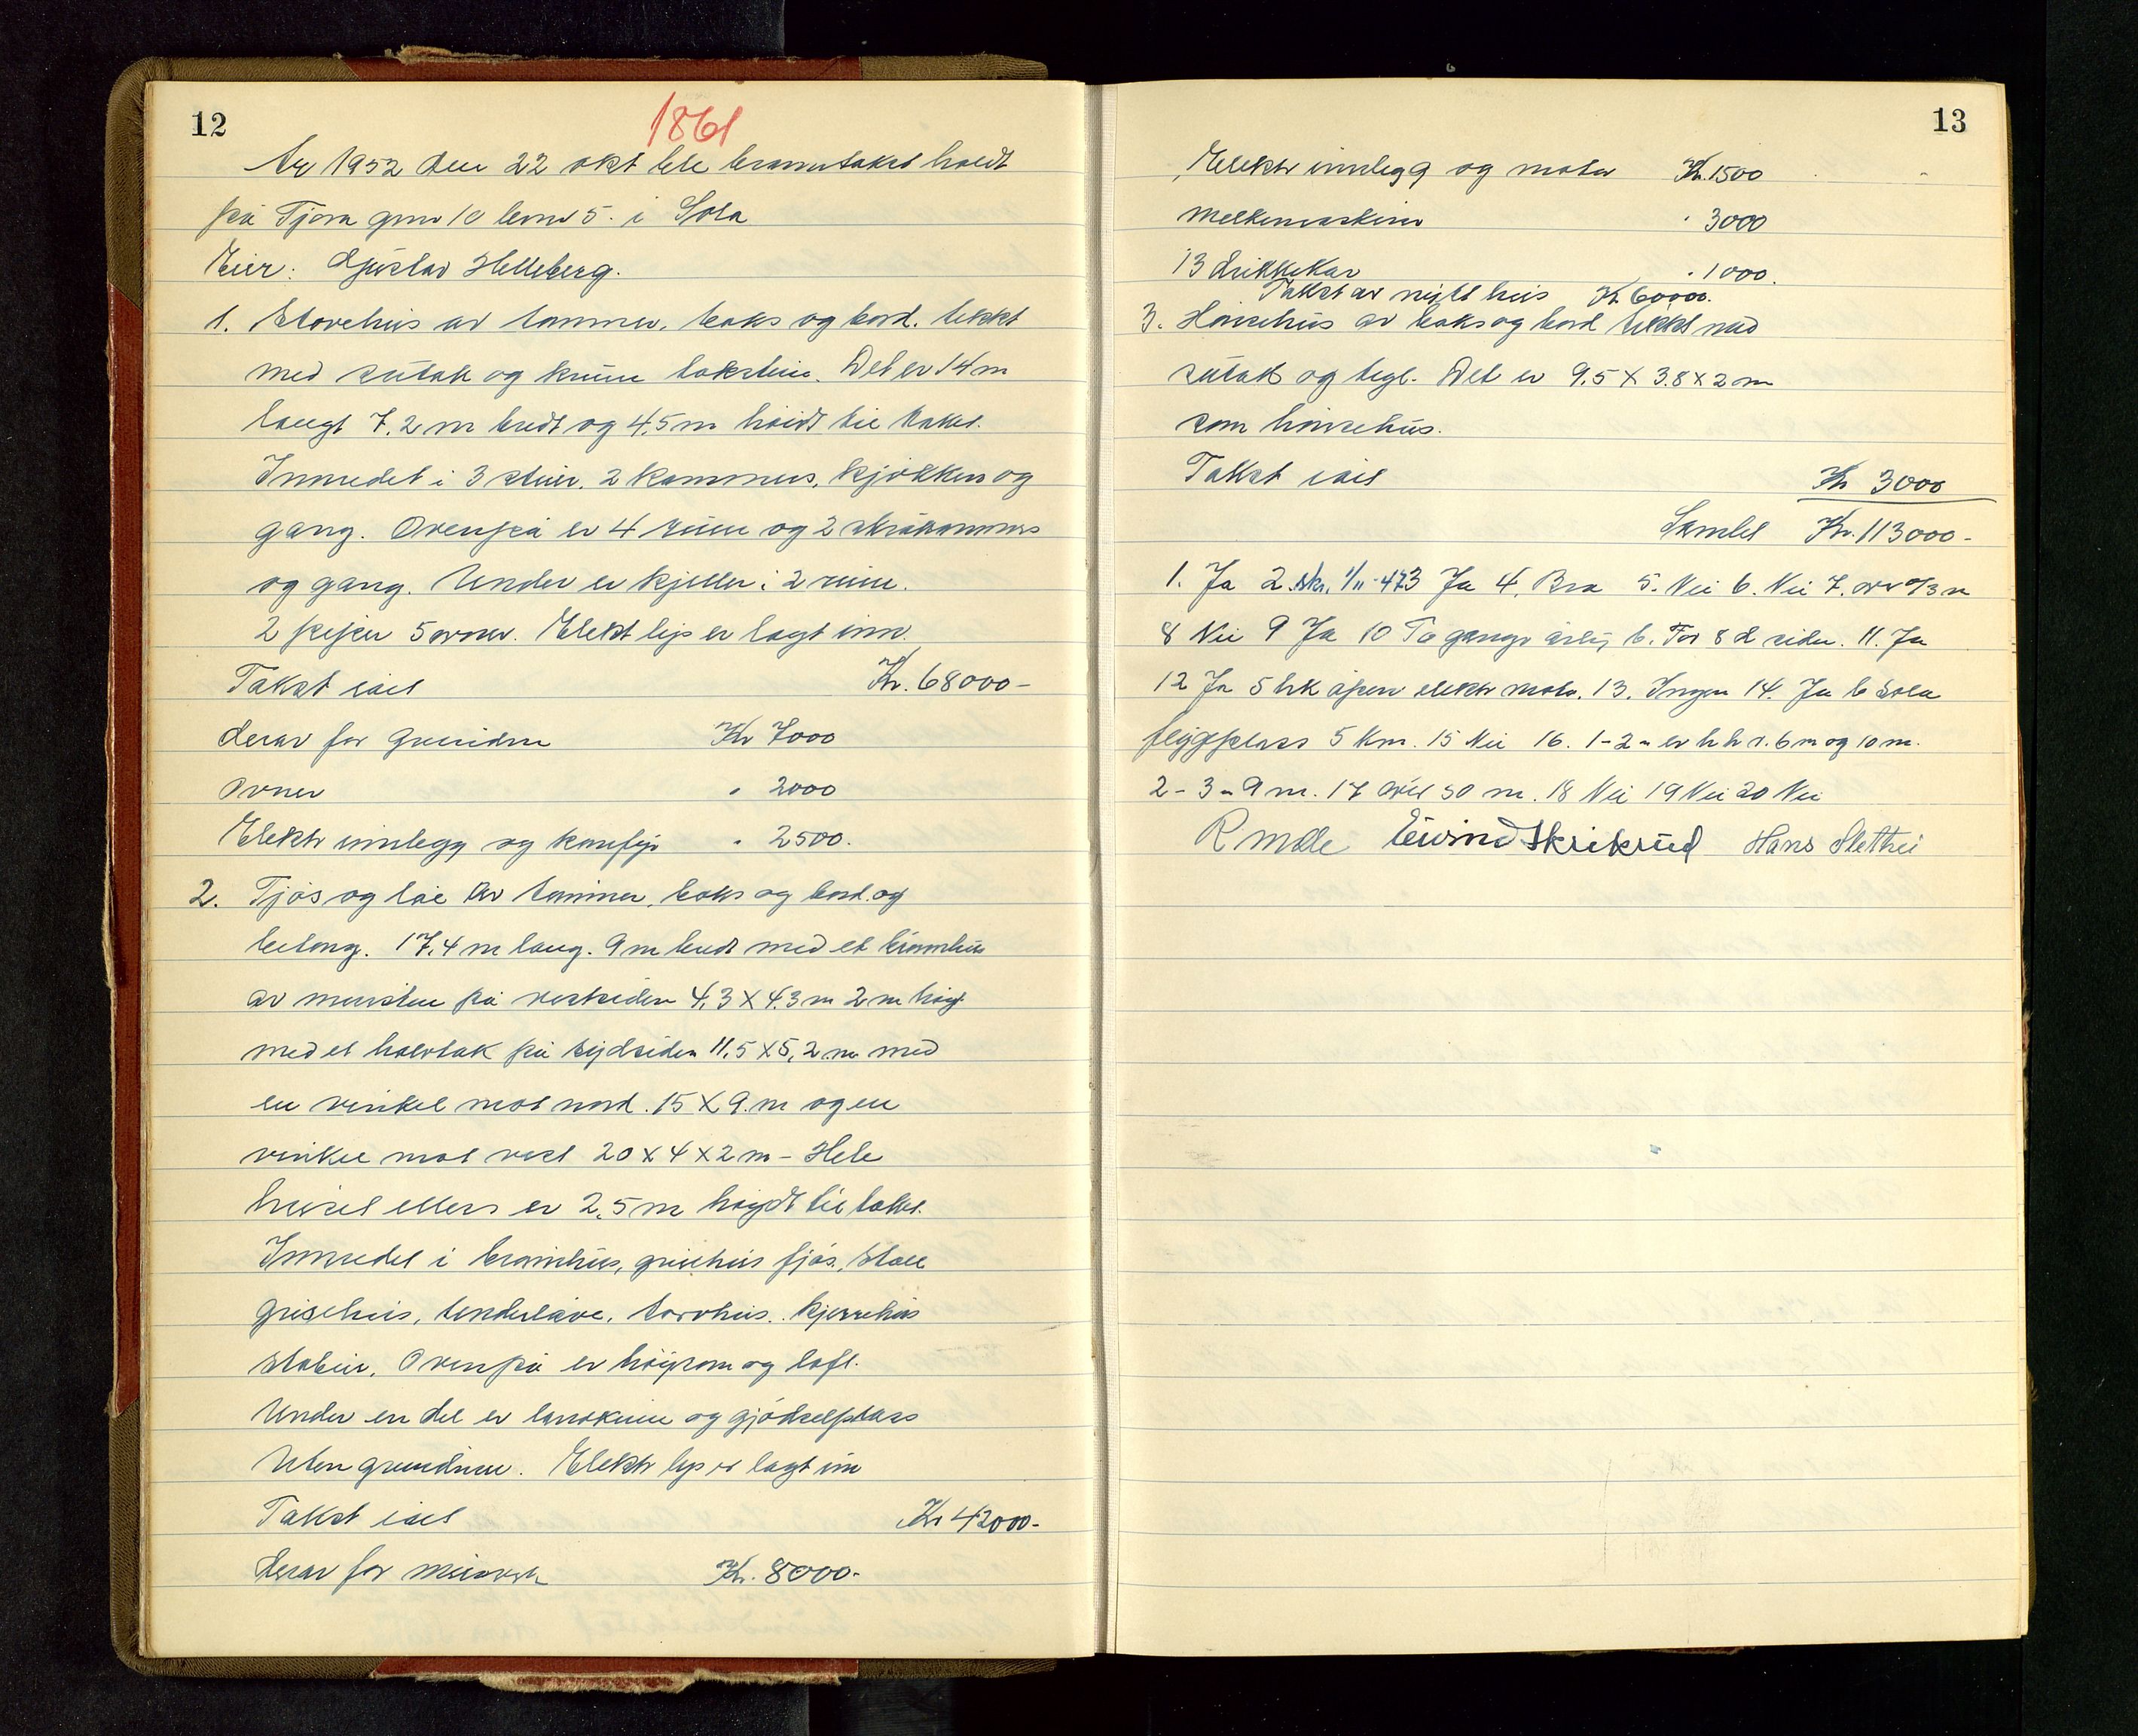 12
1861
År 1952 den 22 okt ble branntakst holdt
på Tjora gnr 10 bnr 5. i Sola
Eier: Gustav Helleberg.
1. Stovehus av tømmer, boks og bord. tekt
med sutak og krum takstein. Det er 14 m
langt 7.2 m bredt og 4.5 m høidt til taket.
Innredet i 3 stuer. 2 kammers, kjøkken og
gang. Ovenpå er 4 rum og 2 skråkammers
og gang. Under er kjeller i 2 rum.
2 piper 5 ovner. Elekt lys er lagt inn.
Takst ialt Kr. 68000-
derav for grunnen Kr 7000
Ovner " 2000
Elektr innlegg og komfyr " 2500.
2. Fjøs og løe av tømmer, boks og bord og
betong. 17,4 m lang. 9 m bredt med et brannhus
av murstein på vestsiden 4,3 x 4.3 m 2 m høg
med et halvtak på sydsiden 11,5 x 5,2 m med
en vinkel mot nord. 15 x 9. m og en
vinkel mot vest 20 x 4 x 2 m - Hele
huset ellers er 2.5 m høgdt til taket.
Innredet i brannhus, grisehus fjøs, stall
grisehus, underløve, torvhus. kjerrehus
stabur. Ovenpå er høyrom og loft.
Under en del er landkum og gjødselplass
Uten grunnmur. Elektr lys er lagt inn
Takst ialt Kr 42000-
derav for murverk Kr. 8000-
13
Elektr innlegg og motor Kr. 1500
Melkemaskin " 3000
13 drikkekar " 1000.
Takst av nytt hus Kr 60000.
3. Hønsehus av boks og bord tekt med
sutak og tegl. Det er 9.5 x 3.8 x 2 m
som hønsehus.
Takst ialt Kr 3000
Samlet Kr. 113000-
1. Ja 2. skr. 1/11-47 3 Ja 4. Bra 5. Nei 6. Nei 7. over 3 m
8 Nei 9 Ja 10 To ganger årlig b. For 8 d siden. 11. Ja
12 Ja 5 hk åpen elektr motor. 13. Ingen 14. Ja b Sola
flyggplass 5 km. 15 Nei 16. 1-2 - er h h v. 6 m og 10 m.
2-3 - 9 m. 17 over 50 m. 18 Nei 19 Nei 20 Nei
Eivind Skrikrud Hans Sletthei